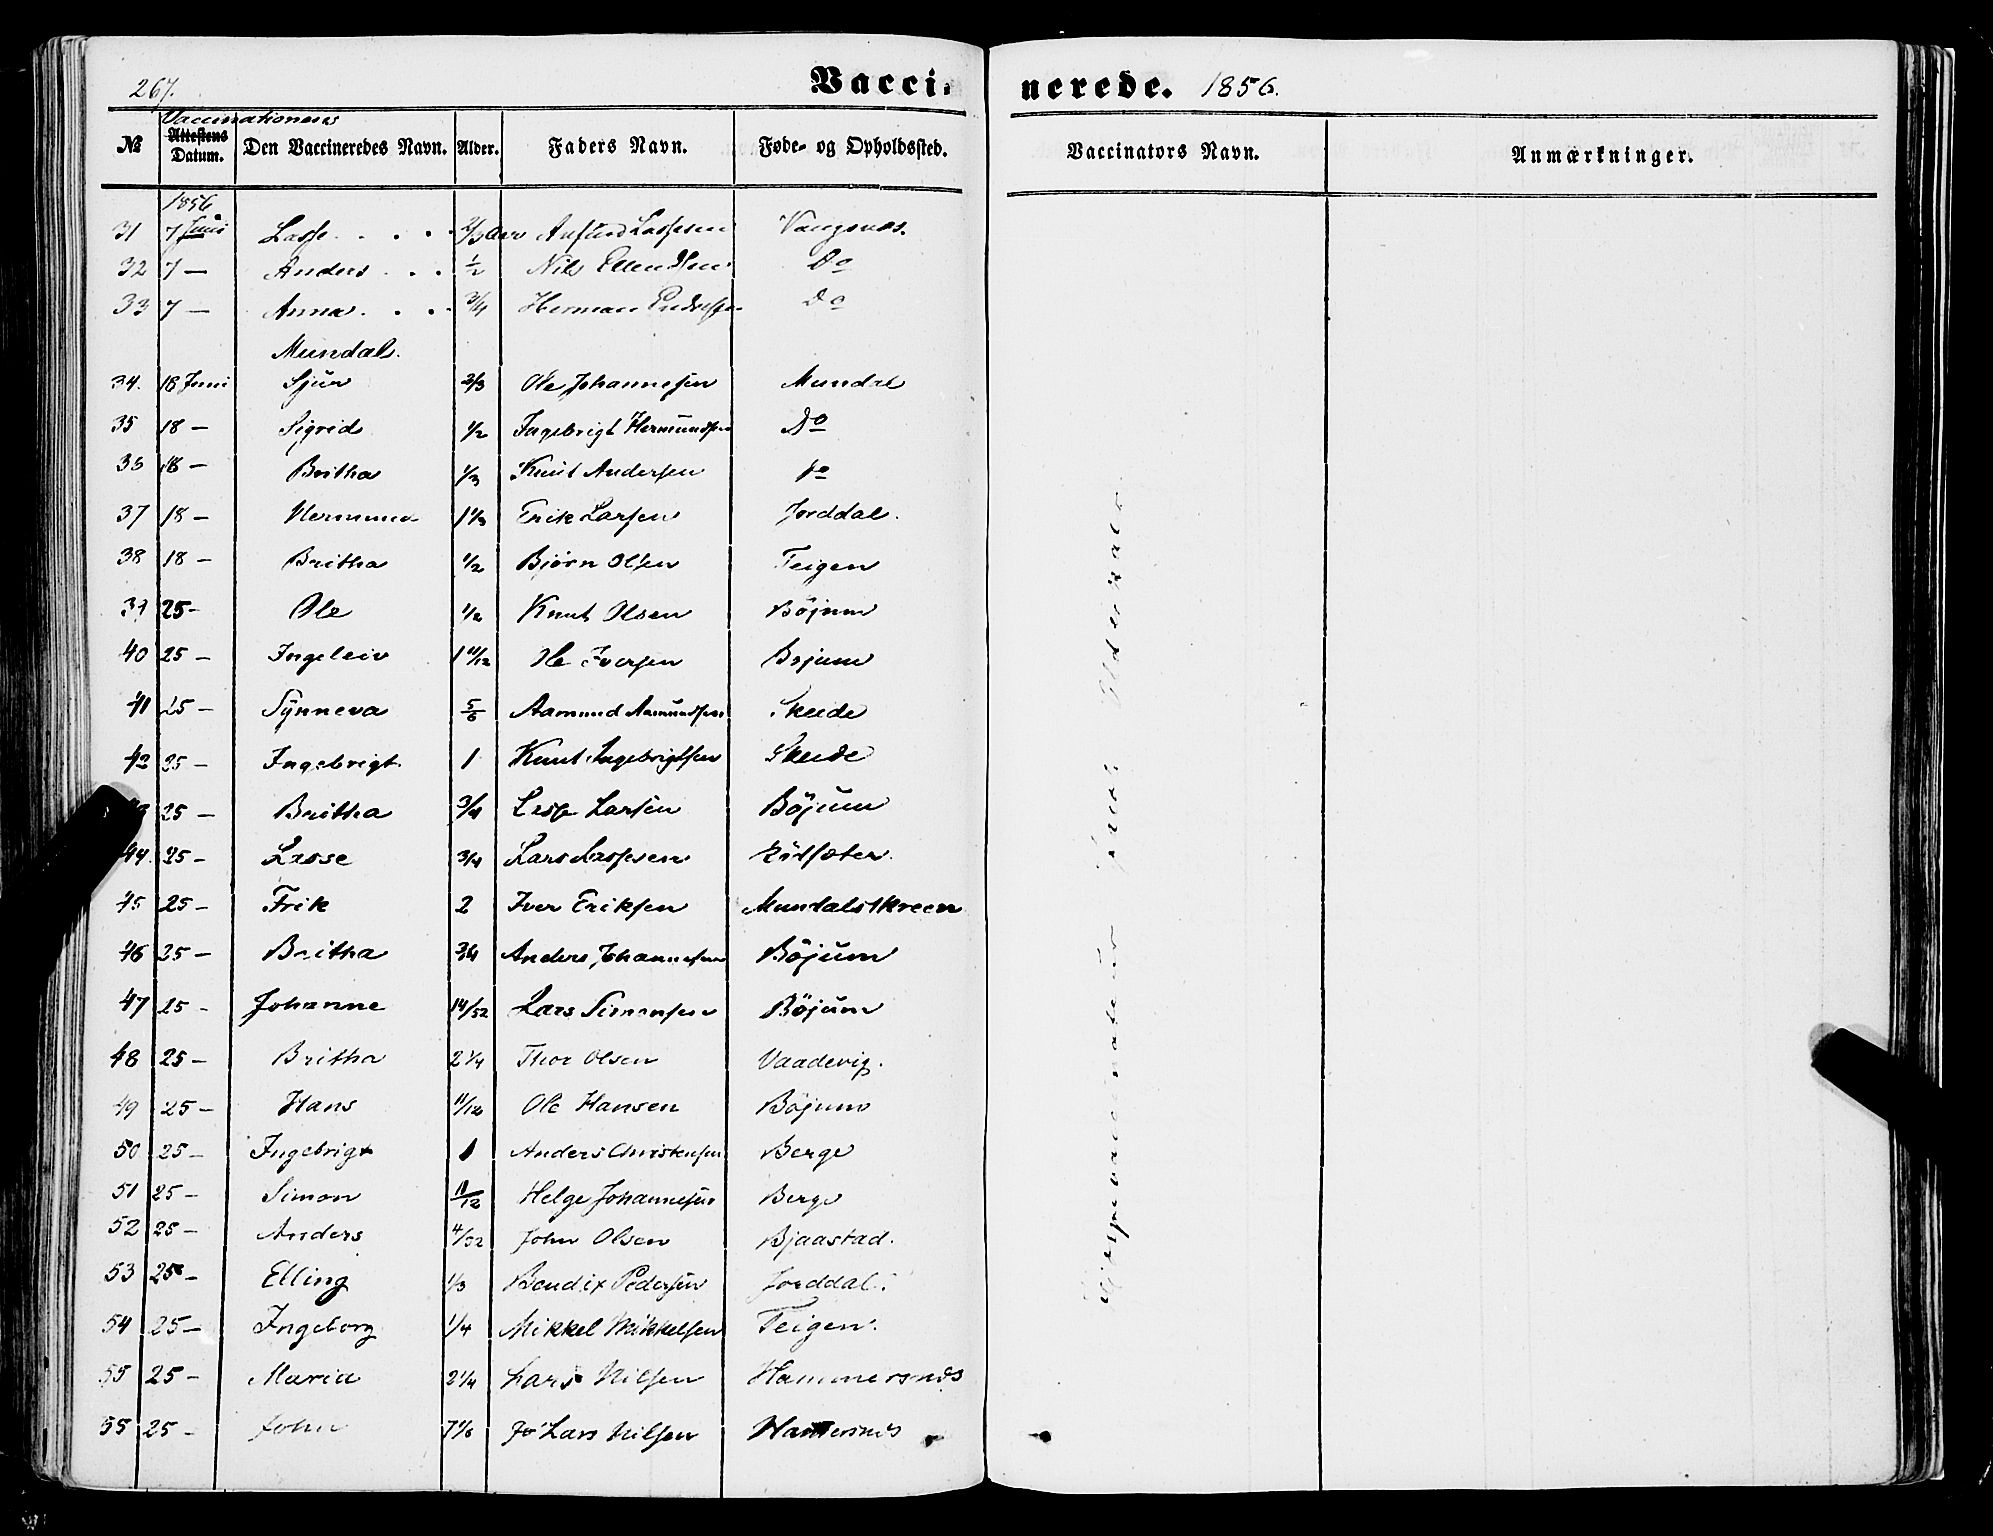 267.
Vaccinerede. 1856.
Vaccinationens
№ Attestens Datum. Den Vaccineredes Navn. Alder. Faders Navn. Føde- og Opholdssted. Vaccinators Navn. Anmærkninger.
1856
31 7 Juni Lasse . . . . 2/3 Aar Anfind Lassesen Vangsnæs.
32 7 — Anders . . . 1/2 Nils Ellendsen Do
33 7 — Anna . . . 3/4 Herman Do
Mundal.
34. 18 Juni Sjur 2/3 Ole Johannesen Mundal
35 18 — Sigrid 1/2 Ingebrigt Hermundsen Do
36 18 — Britha 1/3 Knut Andersen Do
37 18 — Hermund 1 1/3 Erik Larsen Jorddal.
38 18 — Britha 1/2 Bjørn Olsen Teigen
39 25 — Ole 1/2 Knut Olsen Böjum
40 25 — Ingeleiv 1 11/12 Ole Iversen Böjum
41 25 — Synneva 5/6 Aamund Aamundsen Skeide
42 25 — Ingebrigt 1 Knut Ingebrigtsen Skeide
43 25 — Britha 3/4 Lasse Larsen Böjum
44. 25 — Lasse 3/4 Lars Lassesen
45 25 — Erik 2 Iver Eriksen Mundalskreen
46 25 — Britha 3/4 Anders Johannesen Böjum
47 25 - Johanne 14/52 Lars Simonsen Böjum
48 25 — Britha 2 1/4 Thor Olsen Vaadevig.
49 25 — Hans 11/12 Ole Hansen Böjum
50 25 — Ingebrigt 1 Anders Christensen Berge
51 25 — Simon 11/12 Helge Johannesen Berge
52 25 — Anders 4/52 John Olsen Bjaastad.
53 25 — Elling 1/3 Bendix Pedersen Jorddal.
54 25 — Ingeborg 1/4 Mikkel Mikkelsen Teigen.
55 25 — Maria 2 1/4 Lars Nilsen Hammersnæs
55 25 — John 7 1/6 Lars Nilsen